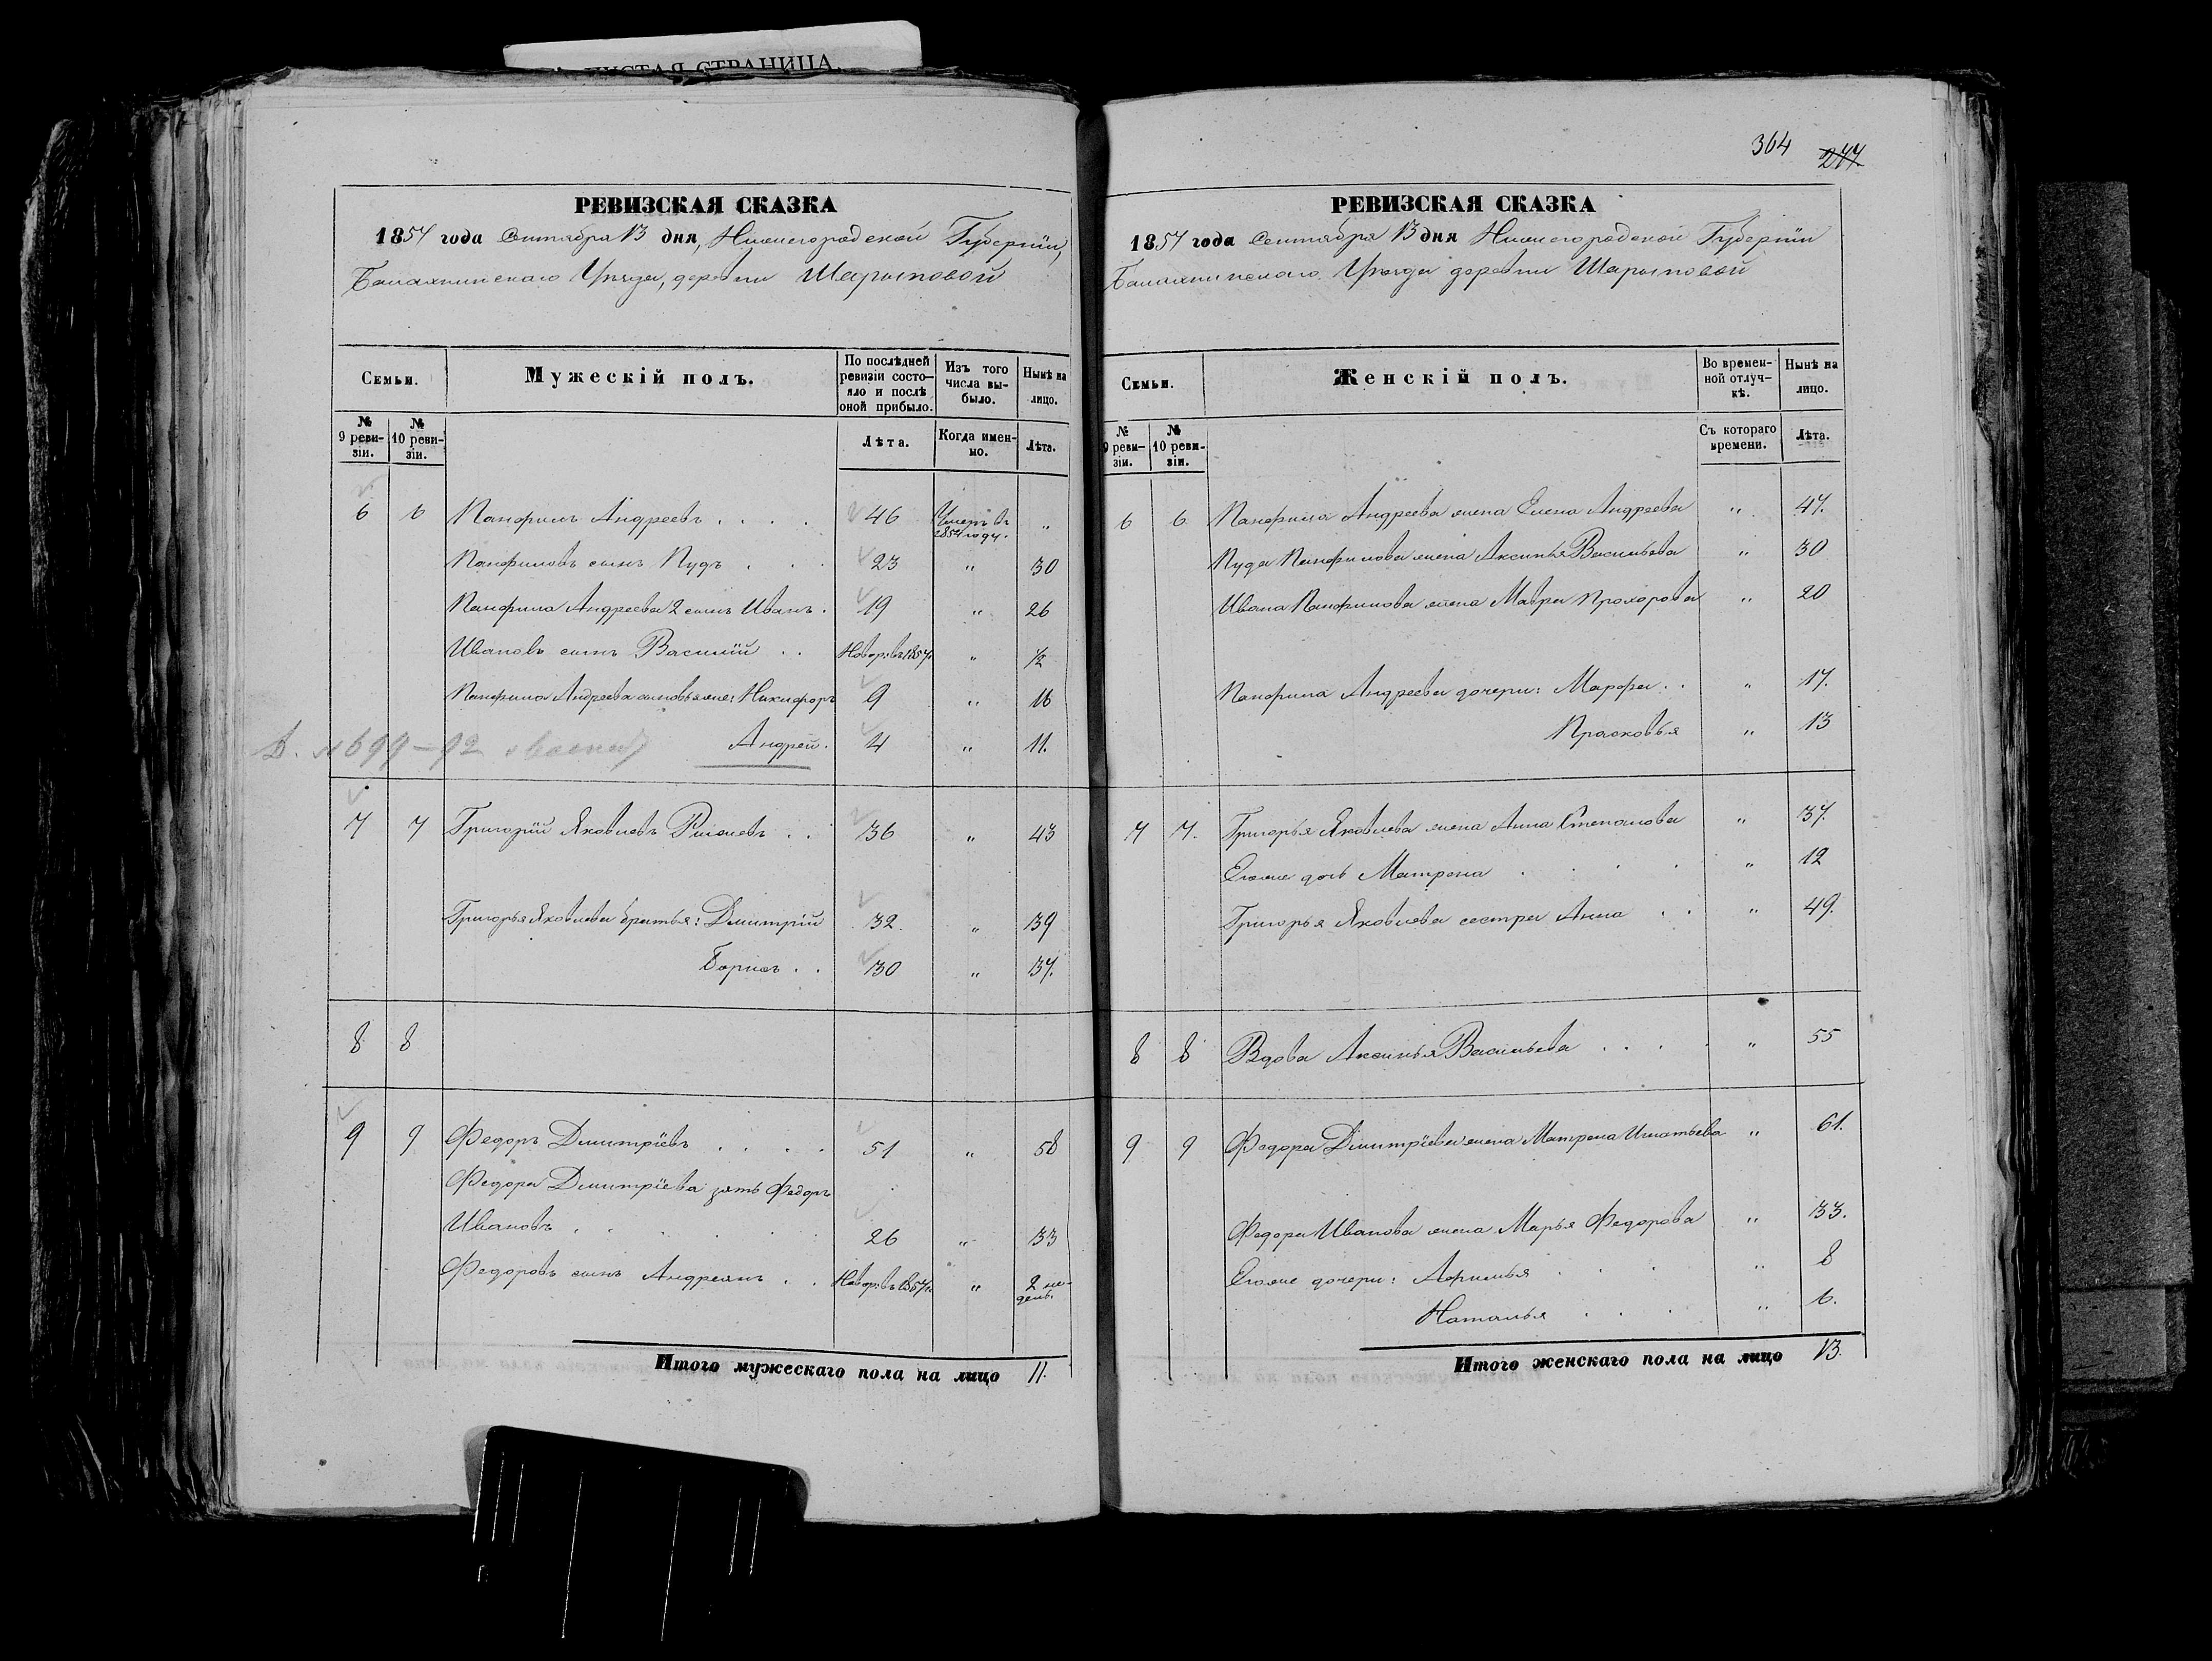 ПУСТАЯ СТРАНИЦА.
РЕВИЗСКАЯ СКАЗКА
1857 года Сентября 13 дня, Нижегородской Губернiи,
Балахнинскаго Уѣзда, деревни Шарыповой
Семьи.
Мужескiй полъ.
По послѣдней ревизiи состояло и послѣ оной прибыло.
Изъ того числа выбыло.
Нынѣ на лицо.
№ 9 ревизiи.
№ 10 ревизiи.
Лѣта.
Когда именно.
Лѣта.
6 6 Панфилъ Андреевъ . . . . 46 Умеръ въ 1854 году. "
Панфиловъ сынъ Пудъ . . . 23 " 30
Панфила Андреева 2 сынъ Иванъ . 19 " 26
Ивановъ сынъ Василiй . . Новор: въ 1857 г. " ½
Панфила Андреева сыновья же: Никифоръ 9 " 16
Андрей. 4 " 11.
7 7 Григорiй Яковлевъ . . 36 " 43
Григорья Яковлева братья: Дмитрiй 32. " 39
Борисъ . . 30 " 37.
8 8
9 9 Федоръ Дмитрiевъ . . . . 51 " 58
Федора Дмитрiева зять Федоръ
Ивановъ . . . . 26 " 33
Федоровъ сынъ Андреянъ . . Новор: въ 1857 г. " 2 недель.
Итого мужескаго пола на лицо 11.
364 277.
РЕВИЗСКАЯ СКАЗКА
1857 года Сентября 13 дня Нижегородской Губернiи
Балахнинскаго Уѣзда деревни Шарыповой
Семьи.
Женскiй полъ.
Во временной отлучкѣ.
Нынѣ на лицо.
№ 9 ревизiи.
№ 10 ревизiи.
Съ котораго времени.
Лѣта.
6 6 Панфила Андреева жена Елена Андреева " 47.
Пуда Панфилова жена Аксинья Васильева " 30
Ивана Панфилова жена Мавра Прохорова " 20
Панфила Андреева дочери: Марфа . . " 17.
Прасковья " 13
7 7. Григорья Яковлева жена Анна Степанова " 37.
Егоже дочь Матрена . . . . " 12
Григорья Яковлева сестра Анна . . " 49.
8 8 Вдова Аксинья Васильева . . . . " 55
9 9 Федора Дмитрiева жена Матрена Игнатьева " 61.
Федора Иванова жена Марья Федорова " 33.
Егоже дочери: Афимья . . . " 8
Наталья . . . . " 6.
Итого женскаго пола на лицо 13.